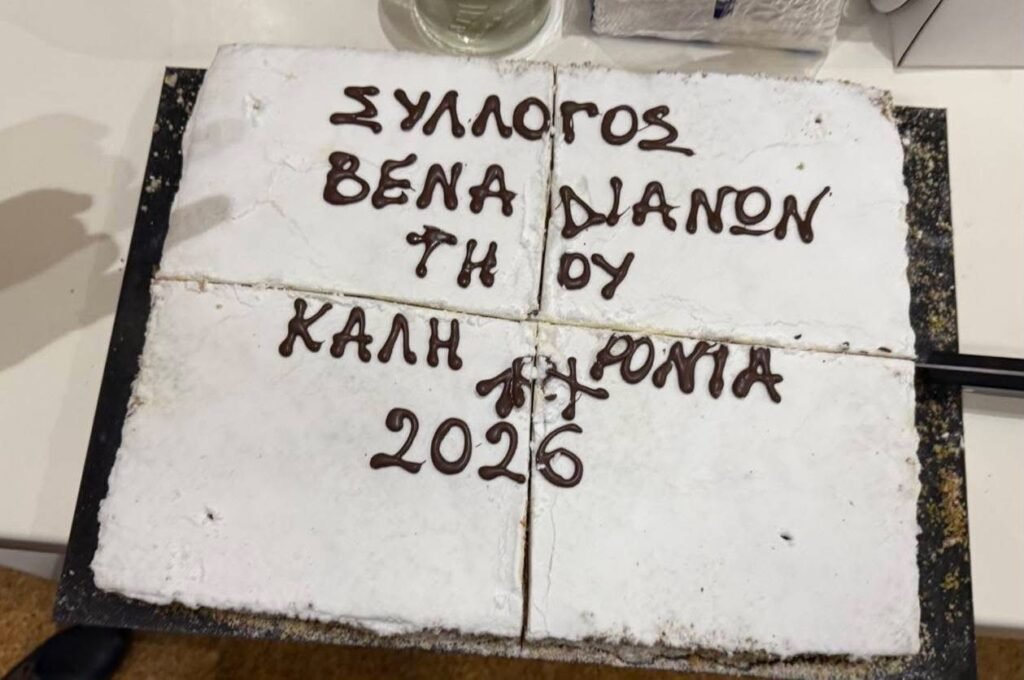 ΣΥΛΛΟΓΟΣ
ΒΕΝΑΔΙΑΝΩΝ
ΤΗΟΥ
ΚΑΛΗ ΧΡΟΝΙΑ
2026